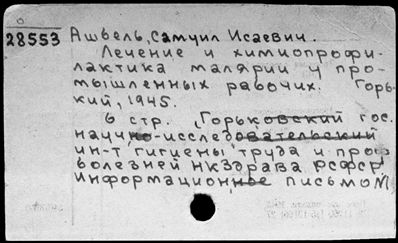 28553 Ашвель, Самуил Исаевич.
Лечение и химиопрофи-
лактика малярии у про-
мышленных рабочих. Горь-
кий, 1945.
6 стр. (Горьковский гос.
научно-исследовательский
ин-т гигиены труда и проф
болезней НКЗдрава РСФСР
Информационное письмо №1